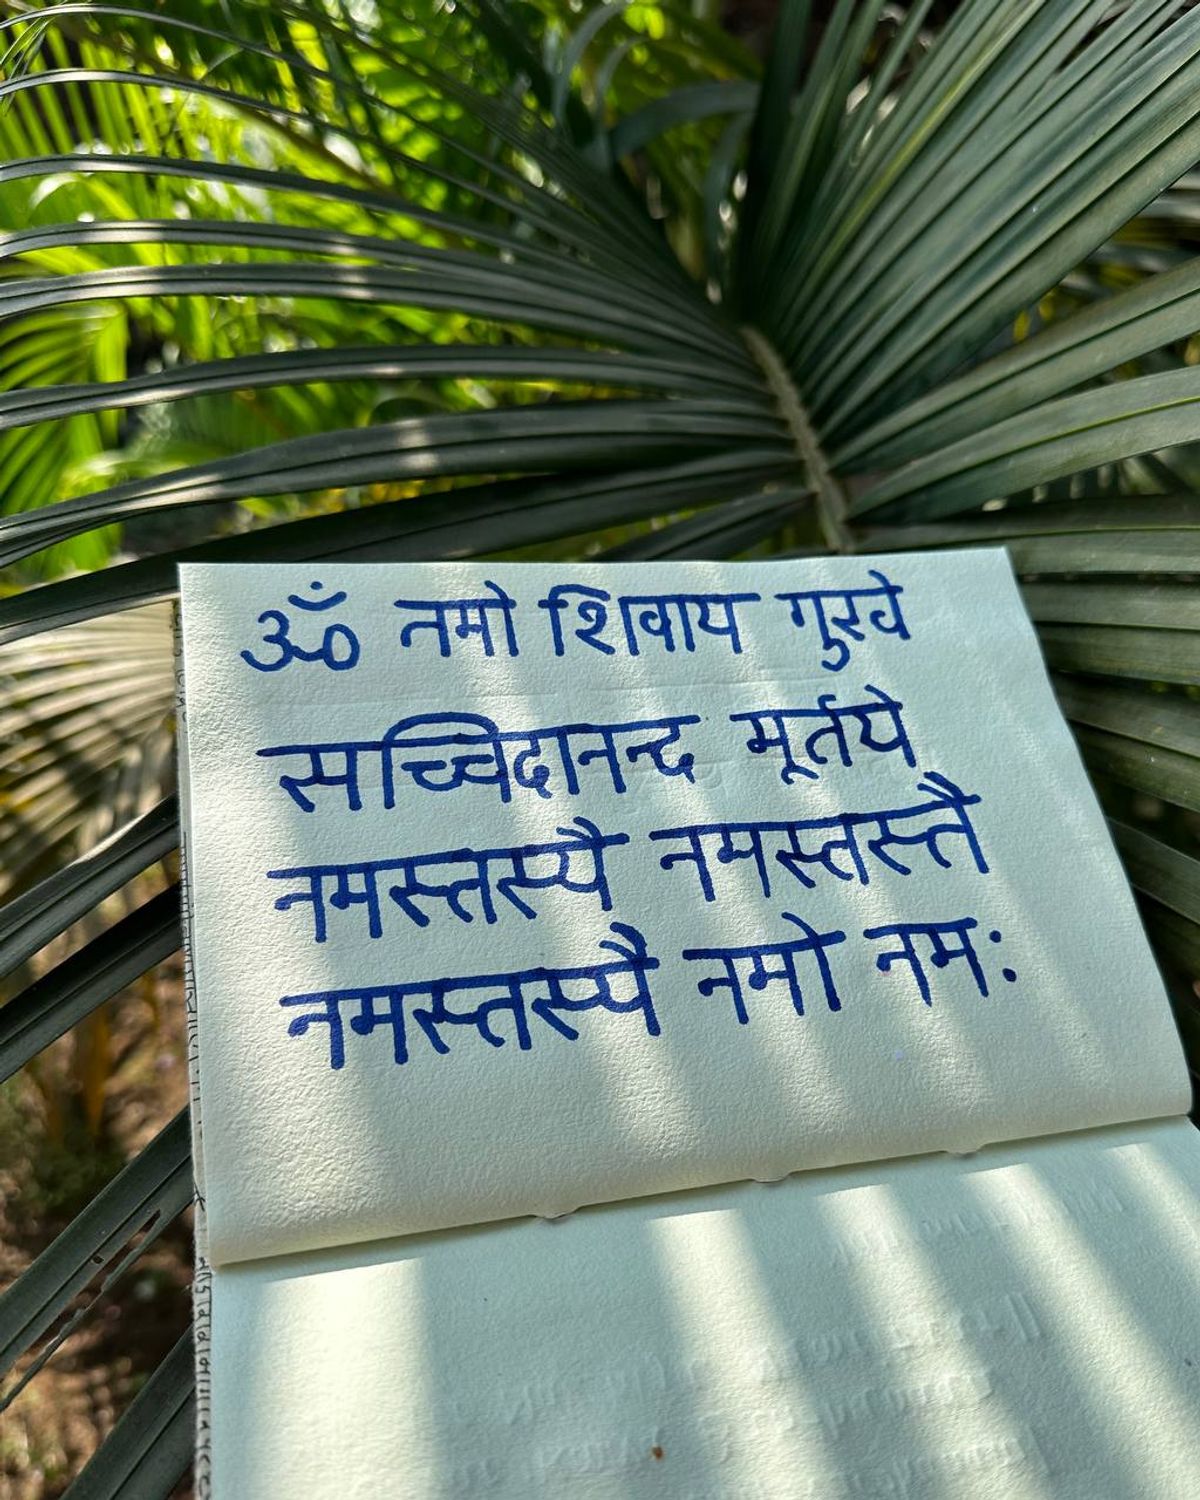 ॐ नमो शिवाय गुरवे
सच्चिदानन्द मूर्तये
नमस्तस्यै नमस्तस्तै
नमस्तस्यै नमो नमः